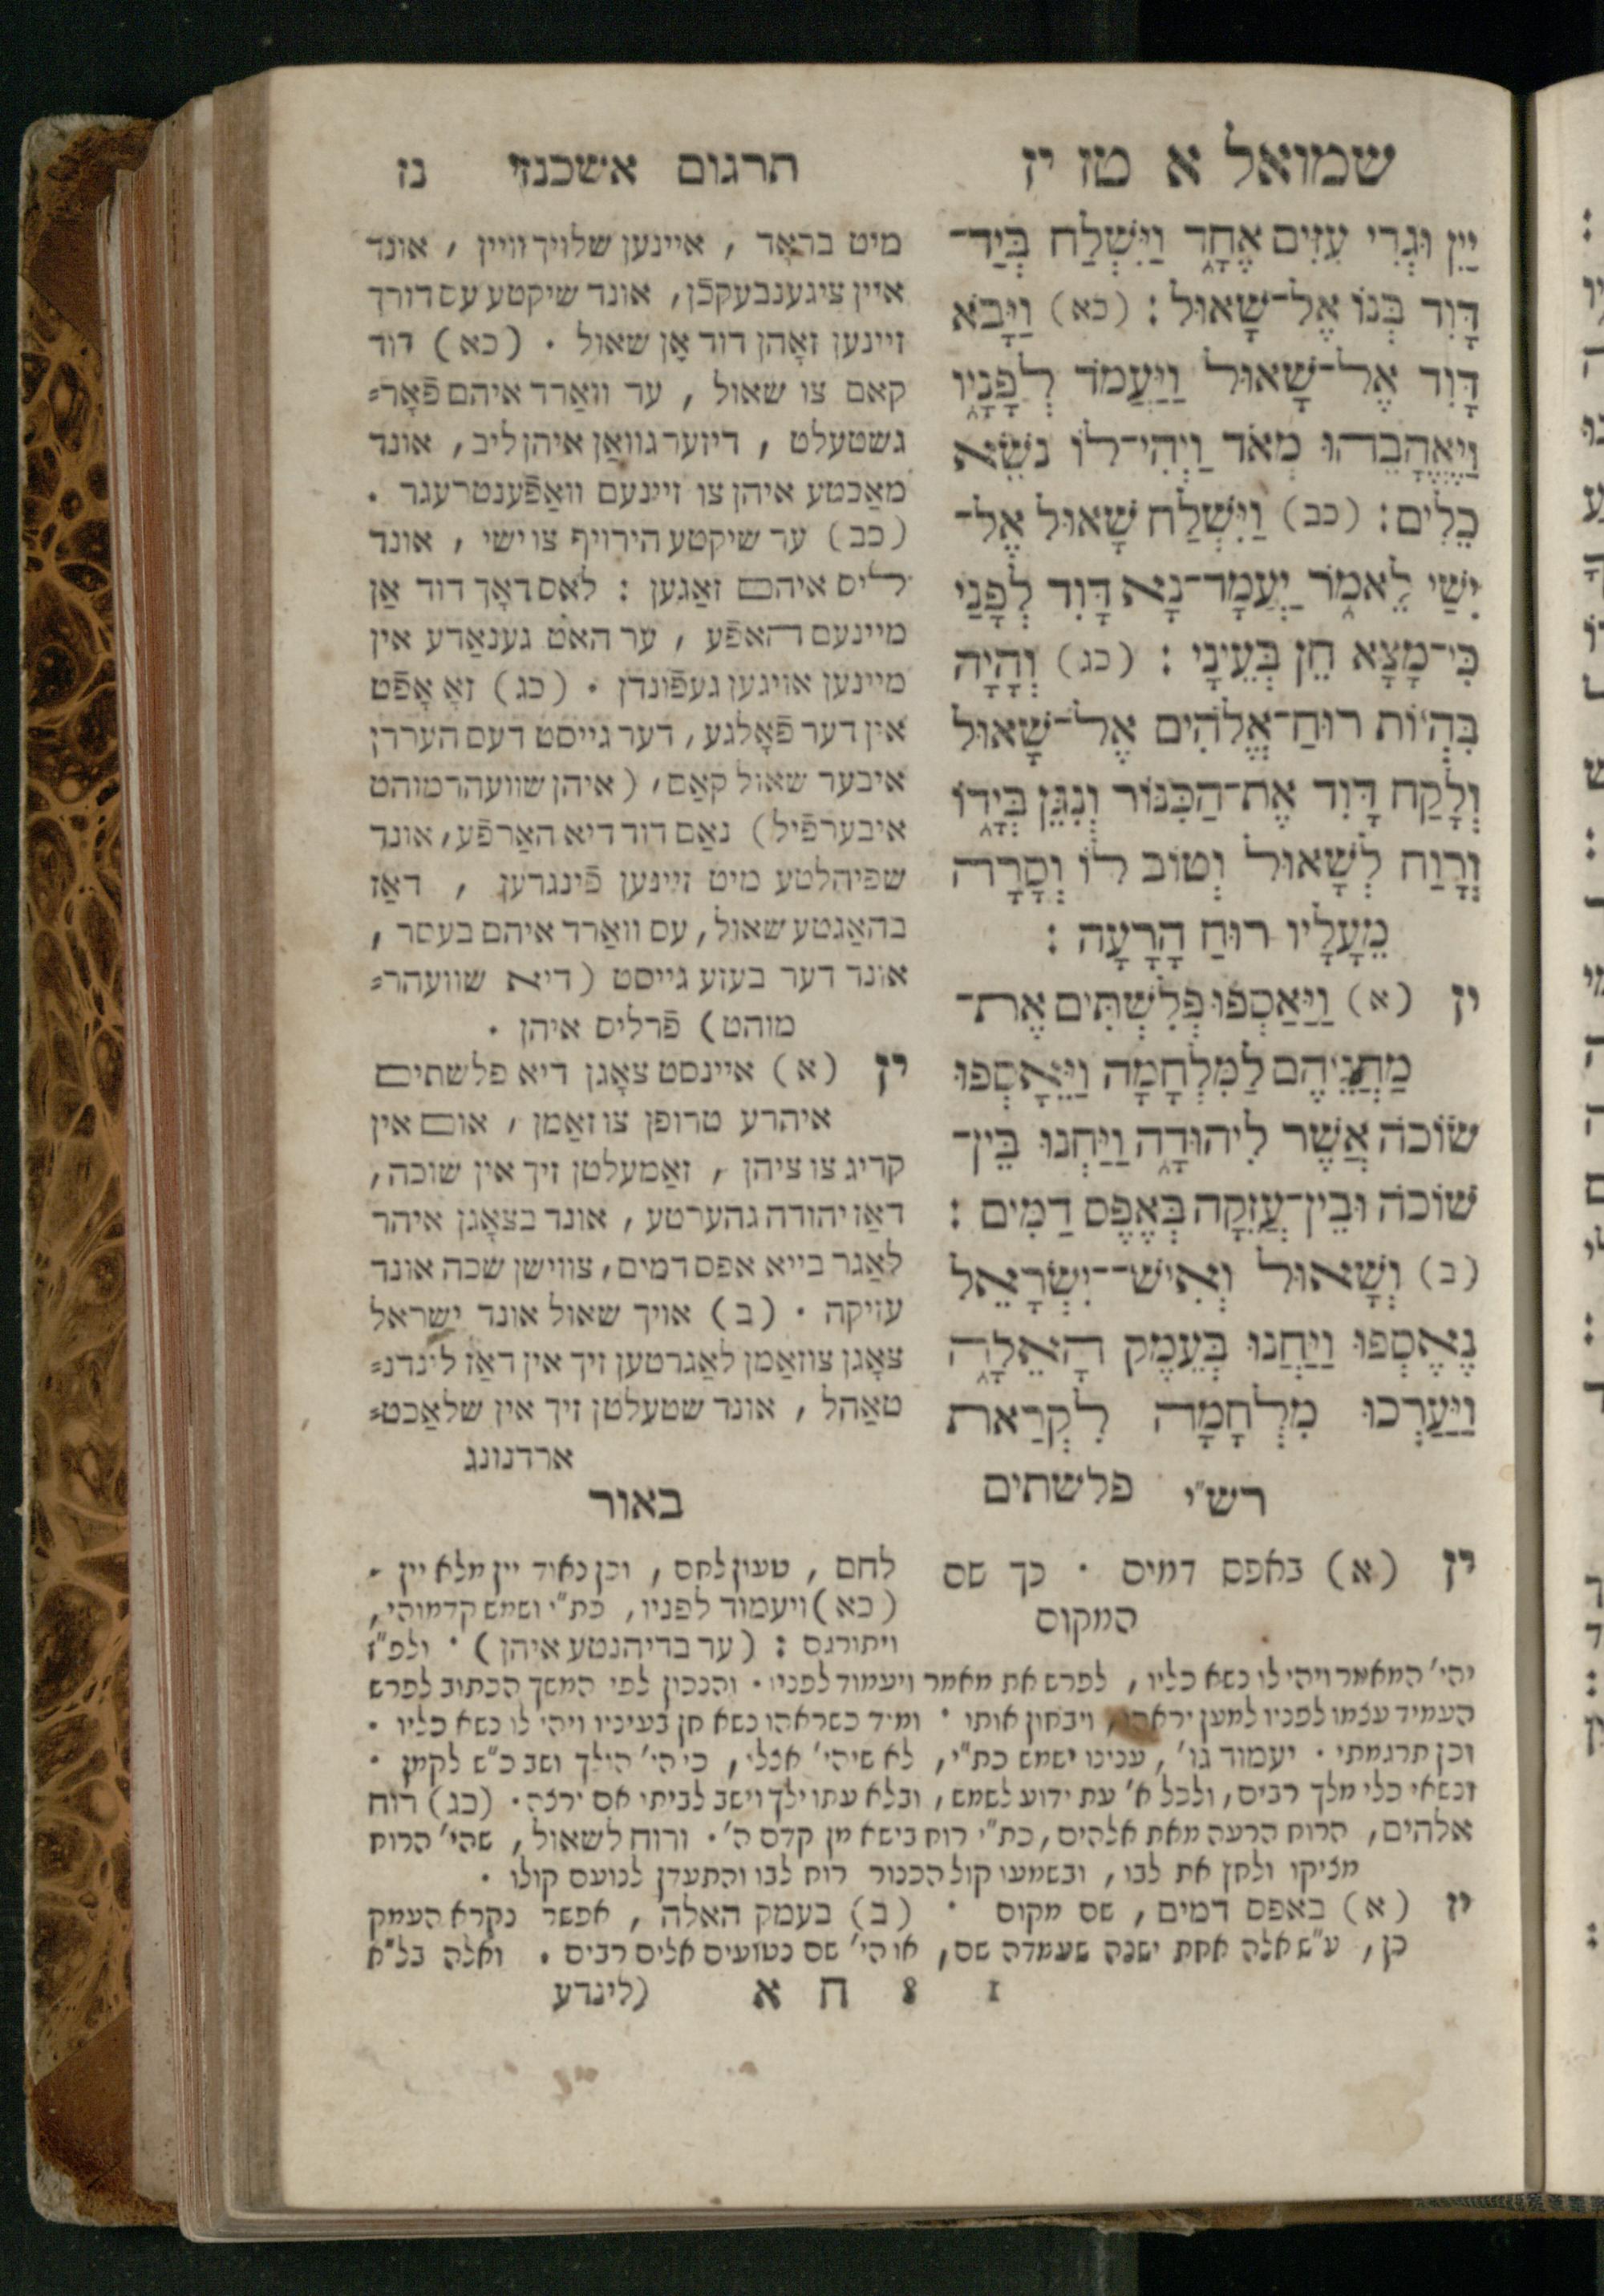 שמואל א טז יז
תרגום אשכנזי נז
יַיִן וּגְדִי עִזִּים אֶחָד וַיִּשְׁלַח בְּיַד־
דָּוִד בְּנוֹ אֶל־שָׁאוּל : (כא) וַיָּבֹא
דָּוִד אֶל־שָׁאוּל וַיַּעֲמֹד לְפָנָיו
וַיֶּאֱהָבֵהוּ מְאֹד וַיְהִי־לוֹ נֹשֵׂא
כֵלִים : (כב) וַיִּשְׁלַח שָׁאוּל אֶל־
יִשַׁי לֵאמֹר יַעֲמָד־נָא דָוִד לְפָנַי
כִּי־מָצָא חֵן בְּעֵינָי : (כג) וְהָיָה
בִּהְיוֹת רוּחַ־אֱלֹהִים אֶל־שָׁאוּל
וְלָקַח דָּוִד אֶת־הַכִּנּוֹר וְנִגֵּן בְּיָדוֹ
וְרָוַח לְשָׁאוּל וְטוֹב לוֹ וְסָרָה
מֵעָלָיו רוּחַ הָרָעָה :
יז (א) וַיַּאַסְפוּ פְלִשְׁתִּים אֶת־
מַחֲנֵיהֶם לַמִּלְחָמָה וַיֵּאָסְפוּ
שׂוֹכֹה אֲשֶׁר לִיהוּדָה וַיַּחְנוּ בֵּין־
שׂוֹכֹה וּבֵין־עֲזֵקָה בְּאֶפֶס דַּמִּים :
(ב) וְשָׁאוּל וְאִישׁ־יִשְׂרָאֵל
נֶאֶסְפוּ וַיַּחֲנוּ בְּעֵמֶק הָאֵלָה
וַיַּעַרְכוּ מִלְחָמָה לִקְרַאת
פלשתים
מיט בראָד , איינען שלויך וויין , אונד
איין ציגענבעקכֿן, אונד שיקטע עס דורך
זיינען זאָהן דוד אָן שאול . (כא) דוד
קאם צו שאול , ער וואַרד איהם פֿאָר=
גשטעלט , דיזער גוואַן איהן ליב, אונד
מאַכטע איהן צו זיינעם וואַפֿענטרעגר .
(כב) ער שיקטע הירויף צו ישי , אונד
ליס איהם זאַגען : לאס דאָך דוד אַן
מיינעם האפֿע , ער האט גענאַדע אין
מיינען אויגען געפֿונדן . (כג) זאָ אָפֿט
אין דער פֿאָלגע, דער גייסט דעס הערדן
איבער שאול קאַם, (איהן שוועהרמוהט
איבערפֿיל) נאַם דוד דיא האַרפֿע, אונד
שפיהלטע מיט זיינען פֿינגרען , דאַז
בהאַגטע שאול, עס וואַרד איהם בעסר ,
אונד דער בעזע גייסט (דיא שוועהר=
מוהט) פֿרליס איהן .
יז (א) איינסט צאָגן דיא פלשתים
איהרע טרופן צוזאַמן , אום אין
קריג צו ציהן , זאַמעלטן זיך אין שוכה,
דאַז יהודה גהערטע , אונד בצאָגן איהר
לאַגר בייא אפס דמים, צווישן שכה אונד
עזיקה . (ב) אויך שאול אונד ישראל
צאָגן צוזאַמן לאַגרטען זיך אין דאַז לינדנ=
טאַהל , אונד שטעלטן זיך אין שלאַכט=
ארדנונג
רש"י
יז (א) באפס דמים . כך שם
המקום
באור
לחם , טעון לחם , וכן נאוד יין מלא יין .
(כא) ויעמוד לפניו, כת"י ושמש קדמוהי,
ויתורגם : (ער בדיהנטע איהן) . ולפ"ז
יהי' המאמר ויהי לו נשא כליו , לפרש את מאמר ויעמוד לפניו. והנכון לפי המשך הכתוב לפרש
העמיד עצמו לפניו למען יראהו, ויבחון אותו . ומיד כשראהו נשא חן בעיניו ויהי לו נשא כליו .
וכן תרגמתי . יעמוד נו' , ענינו ישמש כת"י, לא שיהי' אצלי, כי הי' הולך ושב כ"ש לקמן .
ונשאי כלי מלך רבים, ולכל א' עת ידוע לשמש, ובלא עתו ילך וישב לביתי אם ירצה. (כג) רוח
אלהים, הרוח הרעה מאת אלהים, כת"י רוח בישא מן קדם ה'. ורוח לשאול, שהי' הרוח
מציקו ולחץ את לבו, ובשמעו קול הכנור רוח לבו והתעדן לנועם קולו .
יז (א) באפס דמים, שם מקום . (ב) בעמק האלה , אפשר נקרא העמק
כן, ע"ש אלה אחת ישנה שעמדה שם, או הי' שם נטועים אלים רבים . ואלה בל"א
1 8 ח א (לינדע